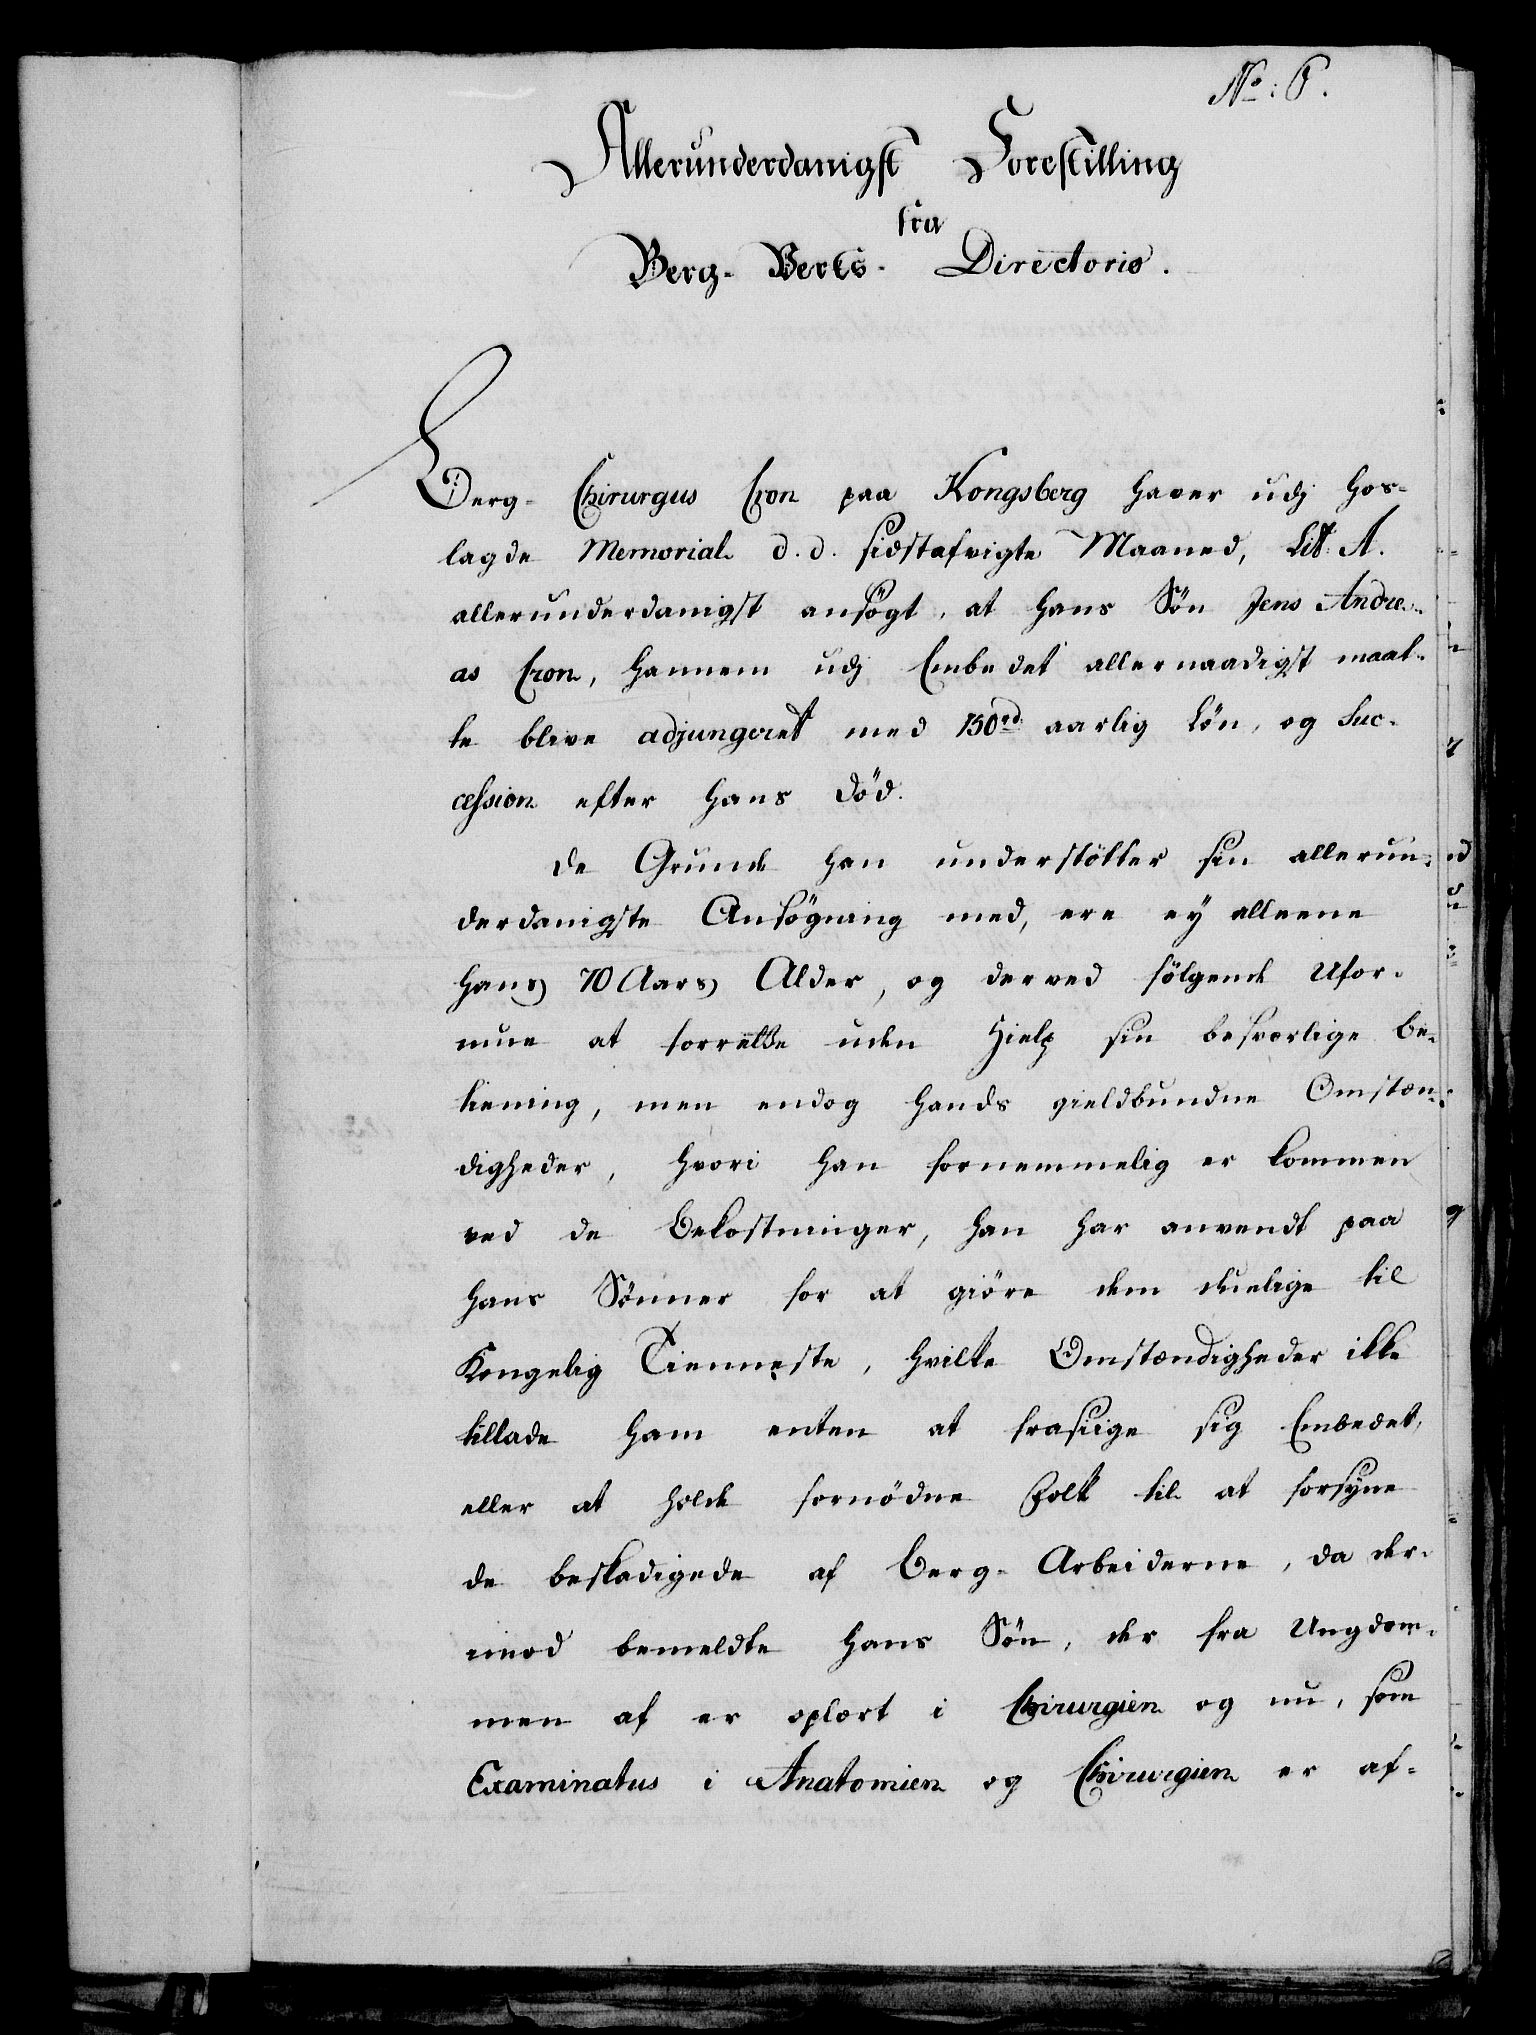 No: 6.
Allerunderdanigst Forestilling
fra
Berg-Verks-Directorio.
Berg-Chirurgus Cron paa Kongsberg haver udj hos-
lagde Memorial d.d. sidstafvigte Maaned, Litt: A.
allerunderdanigst ansøgt, at hans Søn Jens Andre-
as Cron, hannem udj Embedet allernaadigst maat-
te blive adjungeret med 150 rd aarlig Løn, og Suc-
cession efter hans Død.
De Grunde han understøtter sin allerun-
derdanigste Ansøgning med, ere ey alleene
hans 70 Aars Alder, og derved følgende Ufor-
mue at forrette uden Hielp sin besværlige Be-
tiening, men endog hands gieldbundne Omstæn-
digheder, hvori han fornemmelig er kommen
ved de Bekostninger, han har anvendt paa
hans Sønner for at giøre dem duelige til
Kongelig Tienneste, hvilke Omstændigheder ikke
tillade ham enten at frasiige sig Embedet,
eller at holde fornødne Folk til at forsyne
de beskadigede af Berg-Arbeiderne, da der-
imod bemeldte hans Søn, der fra Ungdom-
men af er oplært i Chirurgien og nu, som
Examinatus i Anatomien og Chirurgien er af-